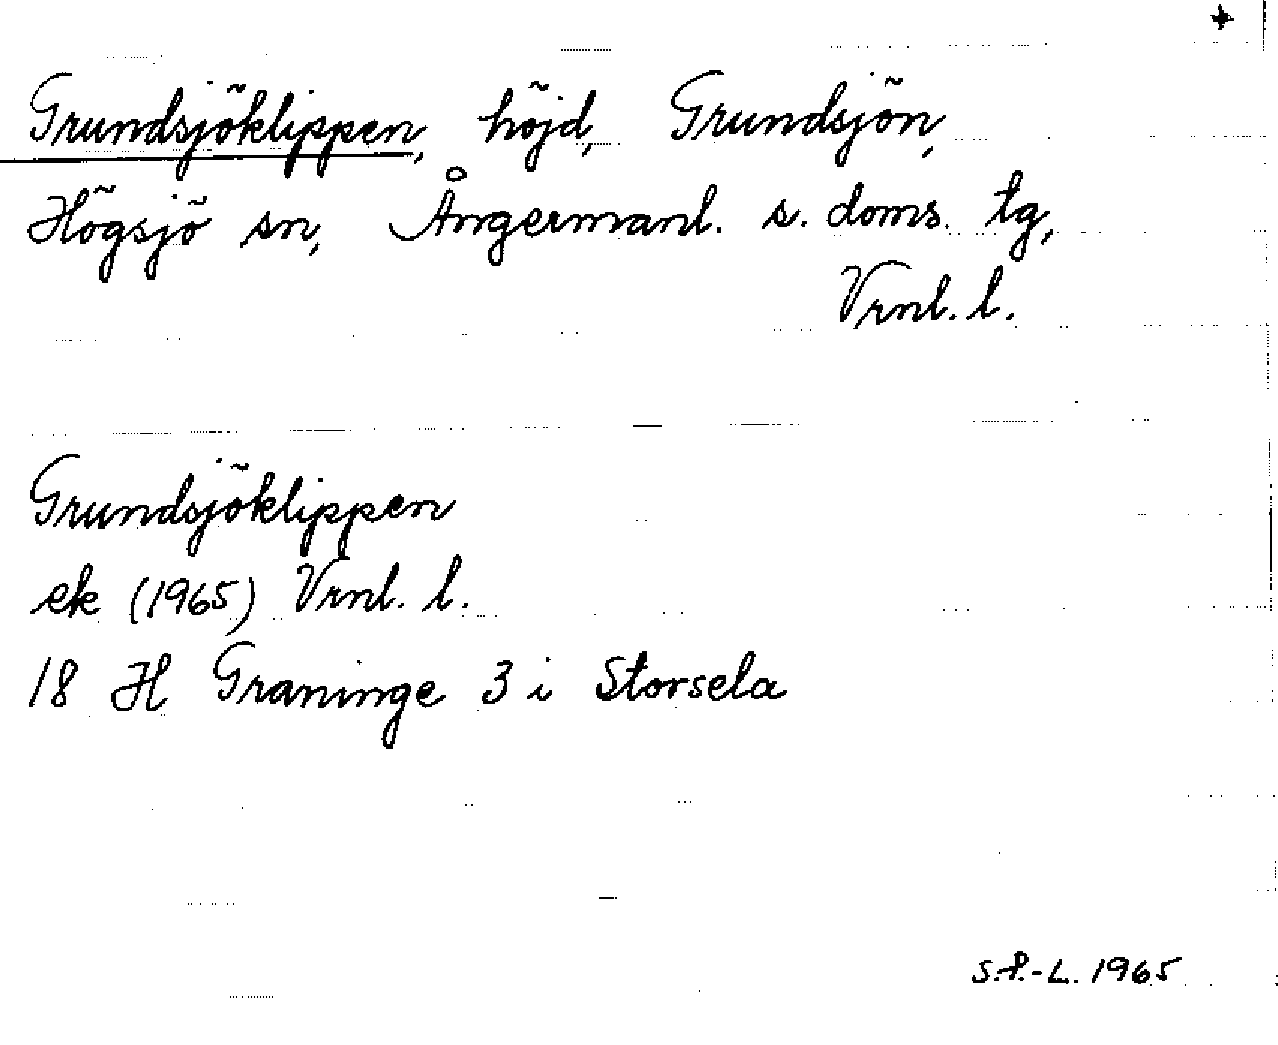 Grundsjöklippen, höjd, Grundsjön,
Högsjö sn, Ångermanl. s. doms. tg,
Vrnl. l.
Grundsjöklippen
ek (1965) Vrnl. l.
18 H Graninge 3 i Storsela
S.P.-L. 1965